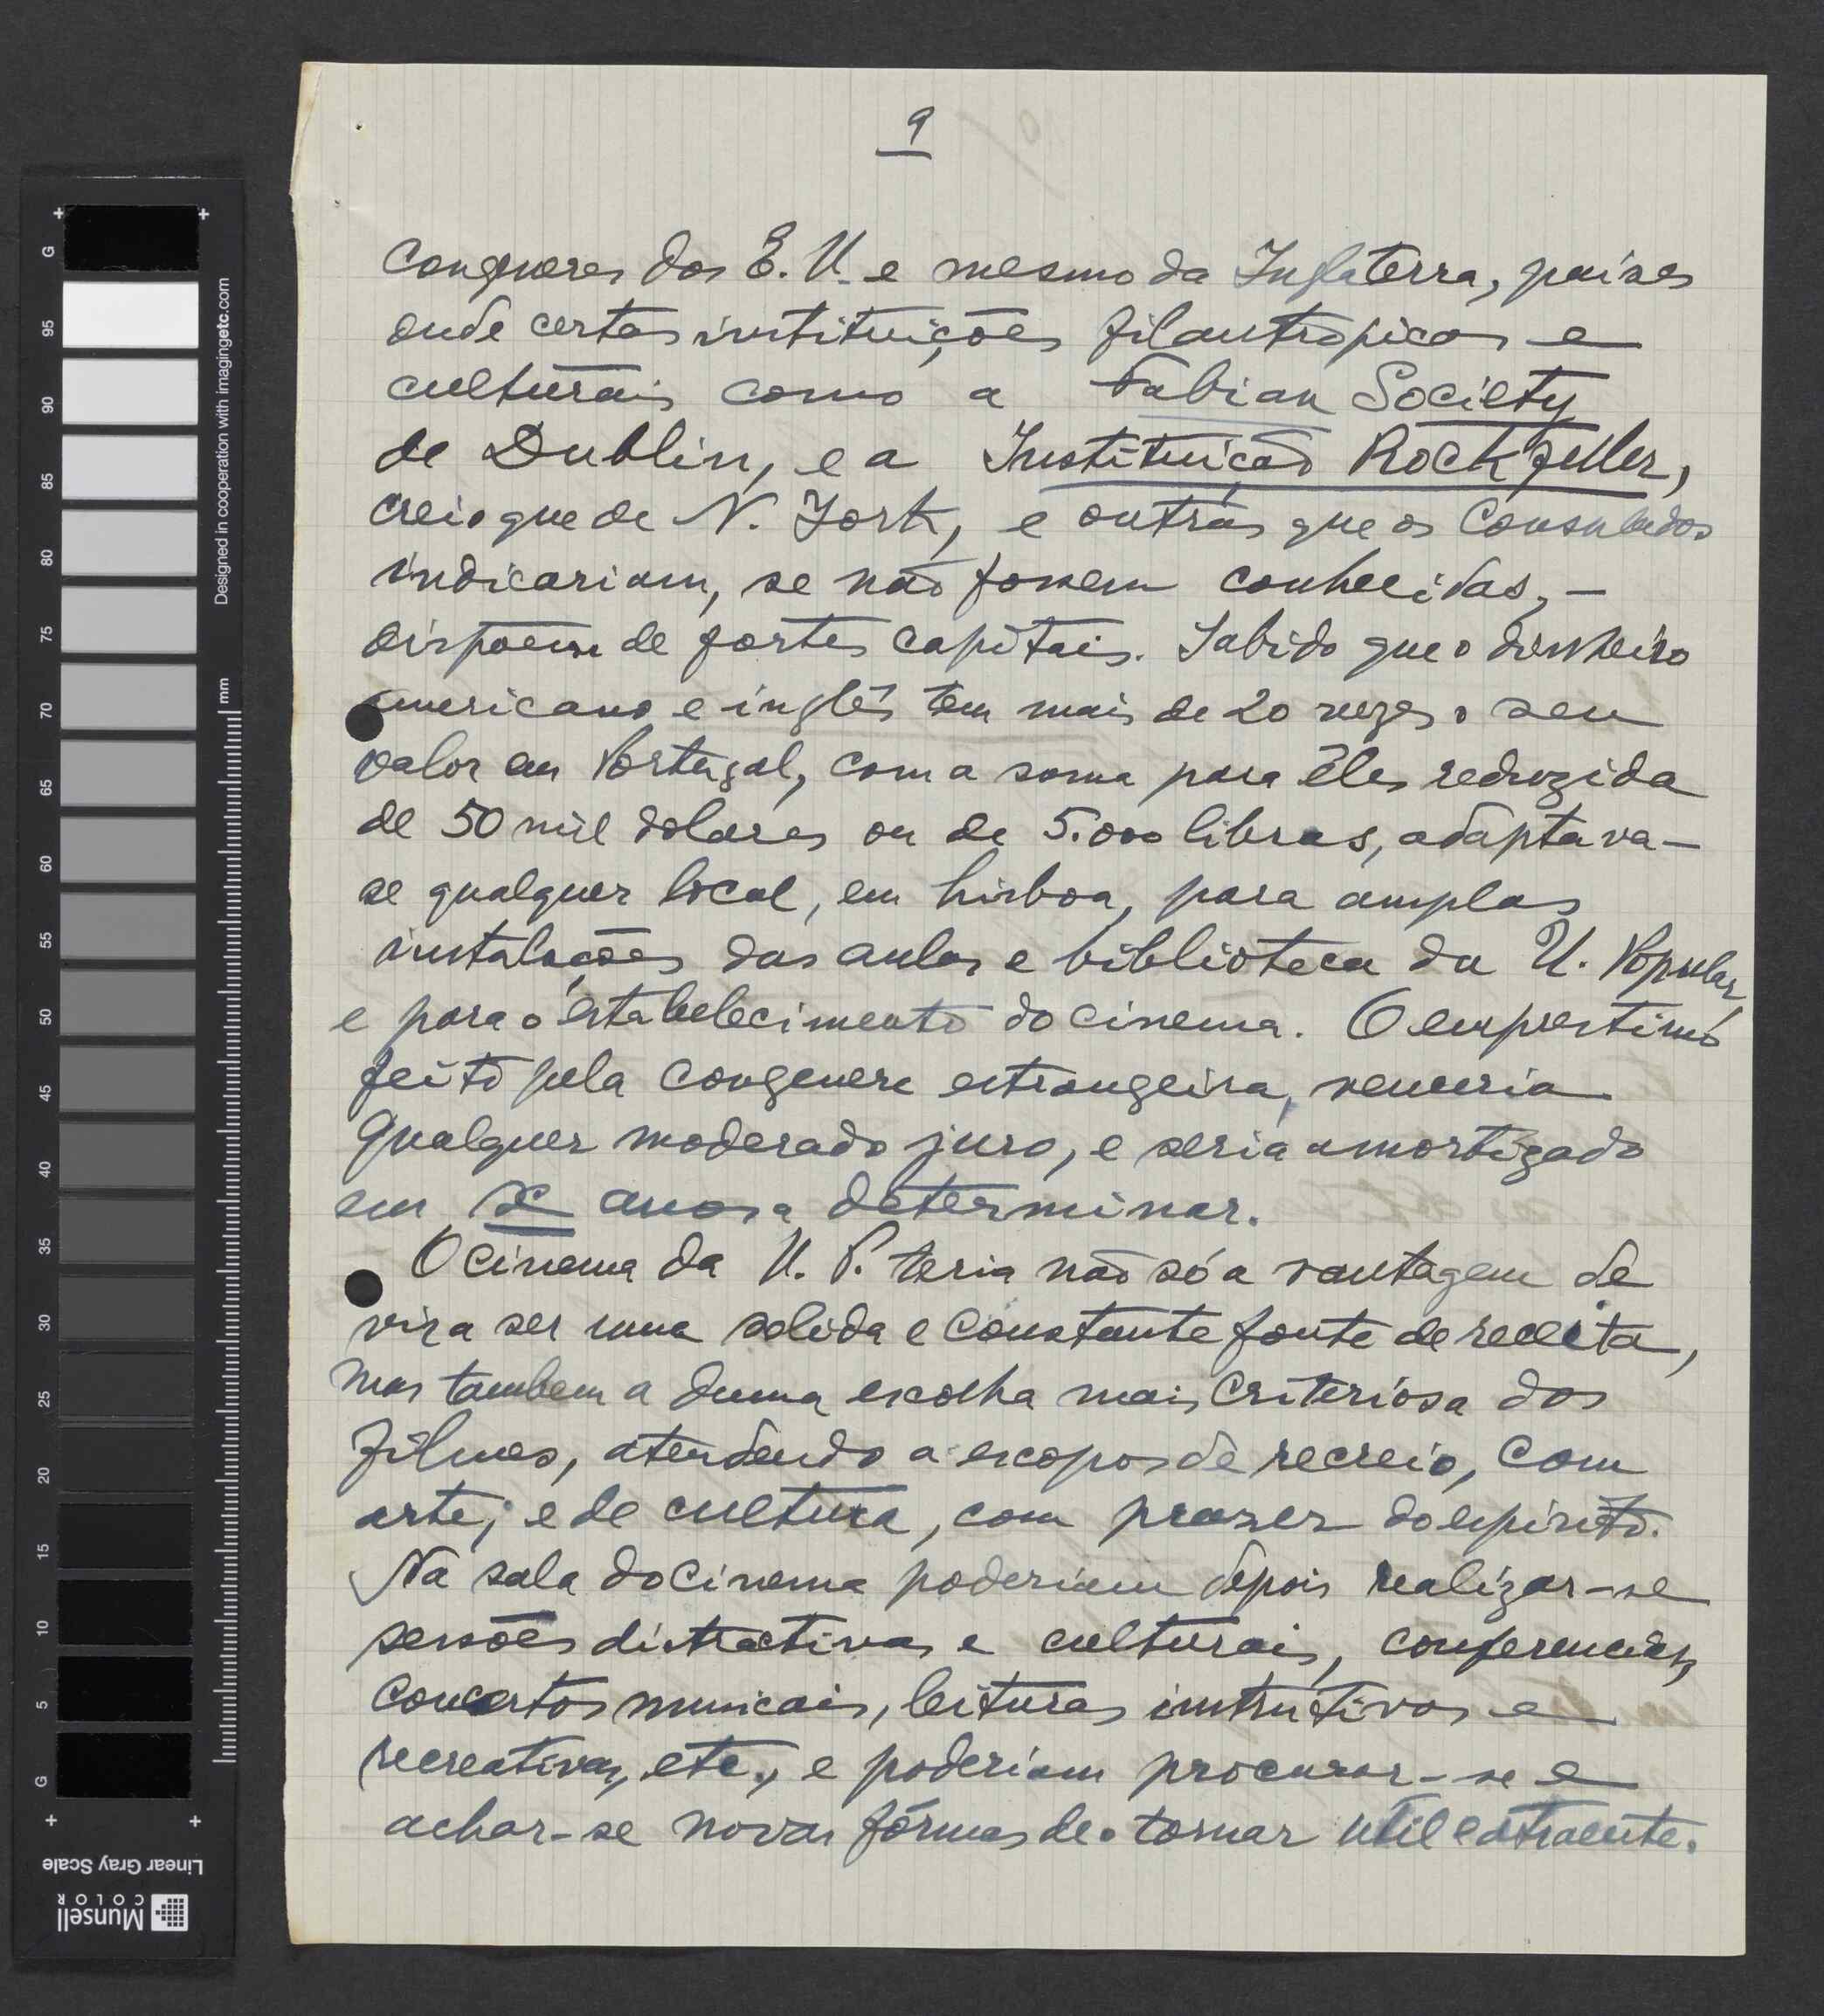 9
congeneres dos E. U. e mesmo da Inglaterra, paises
onde certas instituições filantropicas e
culturais como a Fabian Society
de Dublin, e a Instituição Rockfeller,
creio que de N. York, e outras que os Consulados
indicariam, se não fossem conhecidas, —
dispõem de fortes capitais. Sabido que o dinheiro
americano e inglês tem mais de 20 vezes o seu
valor em Portugal, com a soma para êles reduzida
de 50 mil dolares ou de 5.000 libras, adaptava-
se qualquer local, em Lisboa, para amplas
instalações das aulas e biblioteca da U. Popular
e para o estabelecimento do cinema. O emprestimo
feito pela congenere estrangeira, venceria
qualquer moderado juro, e seria amortizado
em x anos a determinar.
O cinema da U. P. teria não só a vantagem de
vir a ser uma solida e constante fonte de receita,
mas tambem a duma escolha mais criteriosa dos
filmes, atendendo a escopos de recreio, com
arte; e de cultura, com prazer do espirito.
Na sala do cinema poderiam depois realizar-se
sessões distractivas e culturais, conferencias,
concertos musicais, leituras instrutivas e
recreativas, etc., e poderiam procurar-se e
achar-se novas fórmas de o tornar util e atraente.
Designed in cooperation with imagingetc.com
mm
G
95
90
85
80
75
70
65
60
55
50
45
40
35
30
25
20
15
10
5
G
Linear Gray Scale
Munsell
COLOR